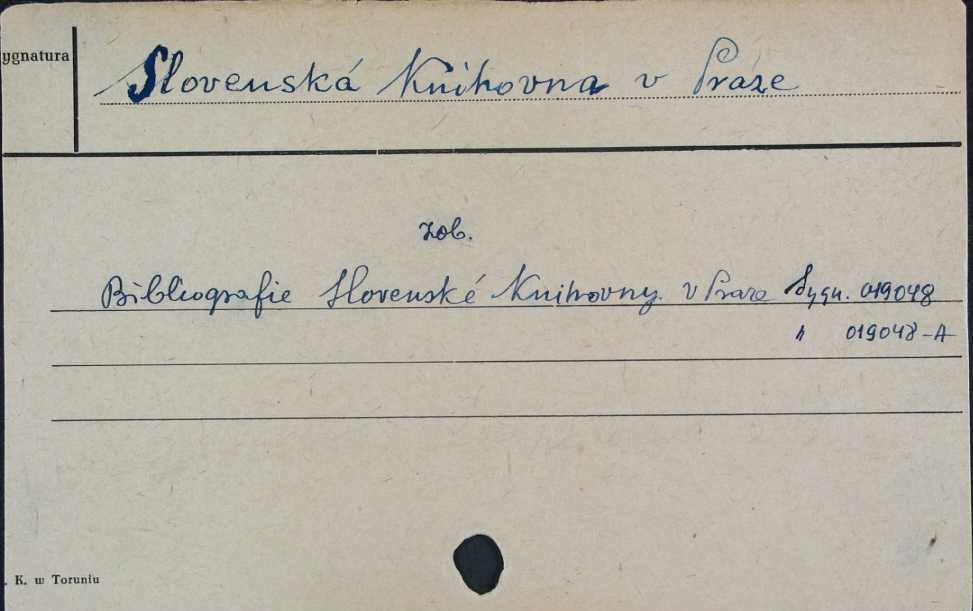 ygnatura
Slovenská Knihovna v Praze
zob.
Bibliografie Slovenské Knihovny v Praze Sygn. 019048
" 019048-A
. K. w Toruniu